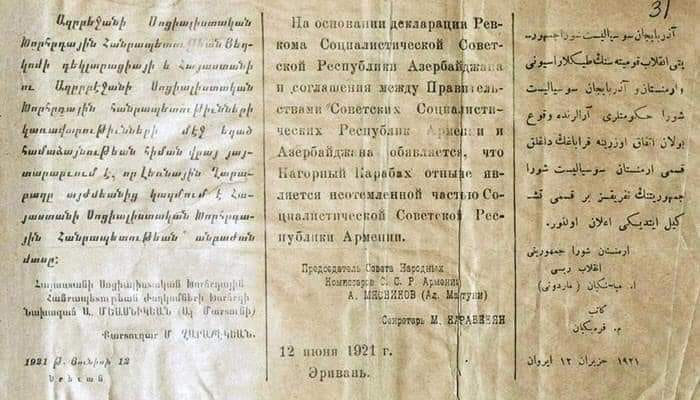 31
Ադրբէջանի Սոցիալիստական
Խորհրդային Հանրապետութեան Յեղ-
կոմի դեկլարացիայի և Հայաստանի
ու Ադրբէջանի Սոցիալիստական
Խորհրդային հանրապետութիւնների
կառավարութիւնների մէջ եղած
համաձայնութեան հիման վրայ յայ-
տարարւում է, որ Լեռնային Ղարա-
բաղը այժմեանից կազմում է Հա-
յաստանի Սոցիալիստական Խորհրդա-
յին Հանրապետութեան անբաժան
մասը:
Հայաստանի Սոցիալիստական Խորհրդային
Հանրապետութեան Ժողկոմների Խորհրդի
Նախագահ Ա. ՄԵԱՍՆԻԿԵԱՆ (Ալ. Մարտունի)
Քարտուղար Մ. ՂԱՐԱԲԵԿԵԱՆ.
1921 թ. Յունիսի 12
Երեւան
На основании декларации Рев-
кома Социалистической Совет-
ской Республики Азербайджана
и соглашения между Правитель-
ствами Советских Социалисти-
ческих Республик Армении и
Азербайджана обявляется, что
Нагорный Карабах отныне яв-
ляется неотемлемой частью Со-
циалистической Советской Рес-
публики Армении.
Председатель Совета Народных
Комиссаров С. С. Р. Армении
А. МЯСНИКОВ (Ал. Мартуни)
Секретарь М. КАРАБЕКЯН
12 июня 1921 г.
Эривань.
آذربایجان سوسیالیست شورا جمهور-
یتی انقلاب قومیته سنك دیکلاراسیونی
و ارمنستان و آذربایجان سوسیالیست
شورا حکومتلری آرالرنده وقوع
بولان اتفاق اوزرینه قراباغك داغلق
قسمی ارمنستان سوسیالیست شورا
جمهوریتنك تفریقسز بر قسمی تشـ
کیل ایتدیکی اعلان اولنور.
ارمنستان شورا جمهوریتی
انقلاب رئیسی
ا. میاسنکیان (مارتونی)
کاتب
م. قره‌بکیان
۱۹۲۱ حزیران ۱۲ ایروان